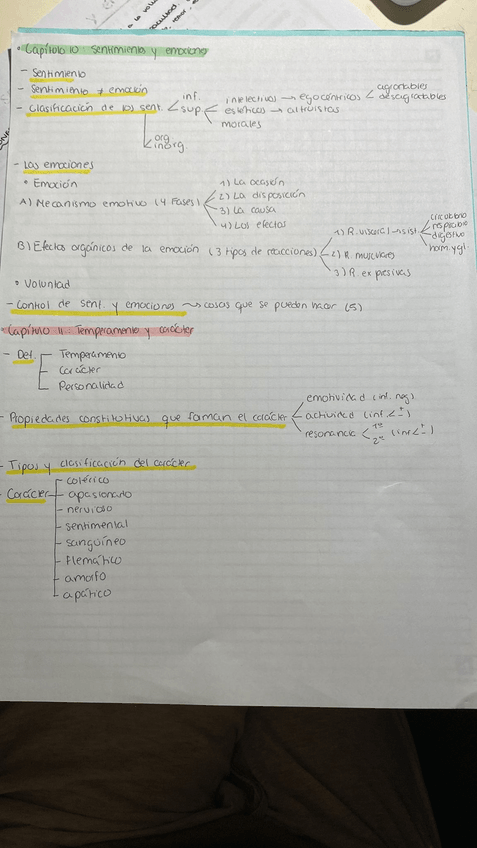 • Capítulo 10 sentimiento y emociono
- Sentimiento
- Sentimiento ≠ emoción
- Clasificación de los sent. < inf.
sup. < intelectivos → egocéntricos < agradables
desagradables
estéticos → altruistas
morales
org
inorg
- Las emociones
• Emoción
A) Mecanismo emotivo (4 fases) < 1) La ocasión
2) La disposición
3) La causa
4) Los efectos
B) Efectos orgánicos de la emoción (3 tipos de reacciones) < 1) R. visceral → sist. < circulatorio
respiratorio
digestivo
horm. y gl.
2) R. musculares
3) R. expresivas
• Voluntad
- Control de sent. y emociones → cosas que se pueden hacer (5)
• Capítulo 11: Temperamento y carácter
- Def. Temperamento
Carácter
Personalidad
- Propiedades constitutivas que forman el carácter < emotividad (inf. neg.)
actividad (inf. < + -)
resonancia < 1ª 2ª (inf < + -)
- Tipos y clasificación del carácter
- Carácter
colérico
apasionado
nervioso
sentimental
sanguíneo
flemático
amorfo
apático